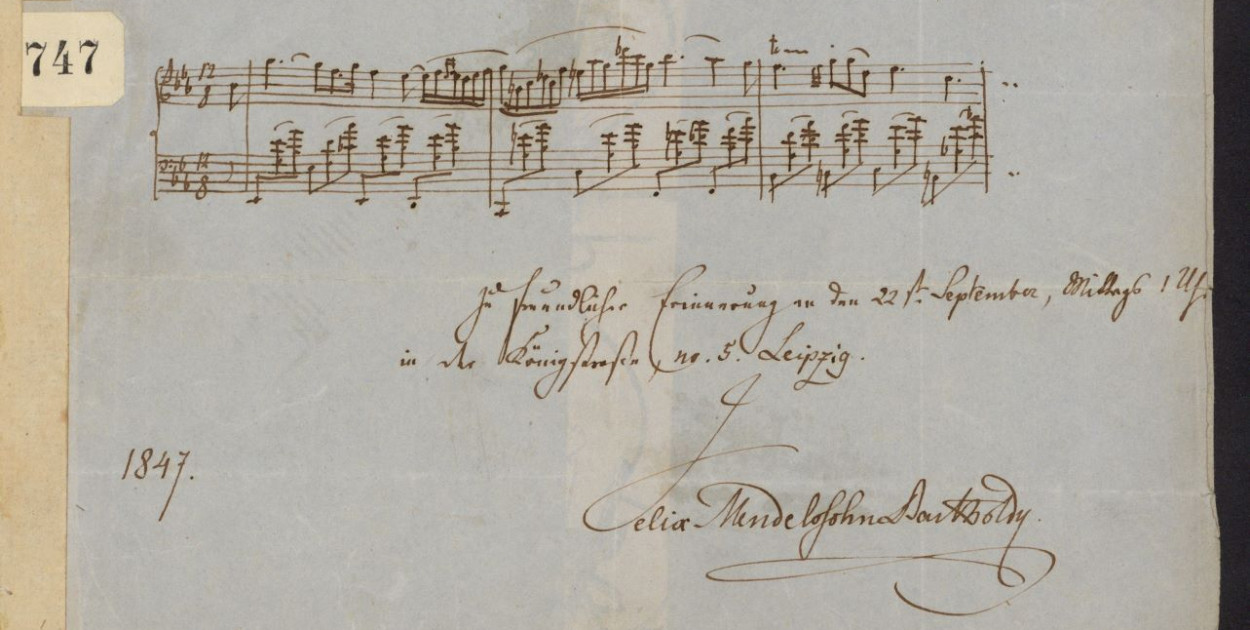 747
12
8
ten
12
8
Zu freundlicher Erinnerung an den 22st. September, Mittags 1 Uhr
in der Königstraße, no. 5. Leipzig.
1847.
Felix Mendelssohn Bartholdy.